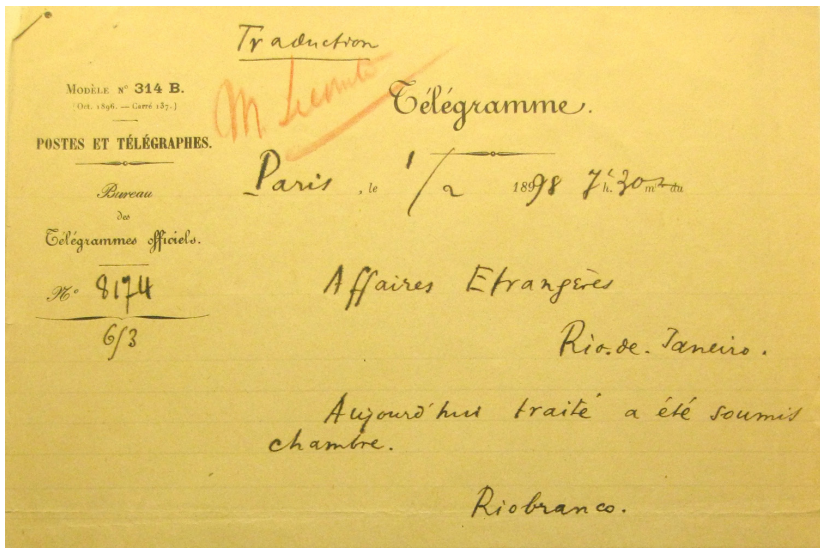 Traduction
M. Lecomte
MODÈLE Nº 314 B.
(Oct. 1896. — Carré 137.)
POSTES ET TÉLÉGRAPHES.
Bureau
des
Télégrammes officiels.
Nº 8174
6/3
Télégramme.
Paris, le 1/2 1898 7 h. 30 m du
Affaires Etrangères
Rio-de-Janeiro.
Aujourd'hui traité a été soumis
chambre.
Riobranco.